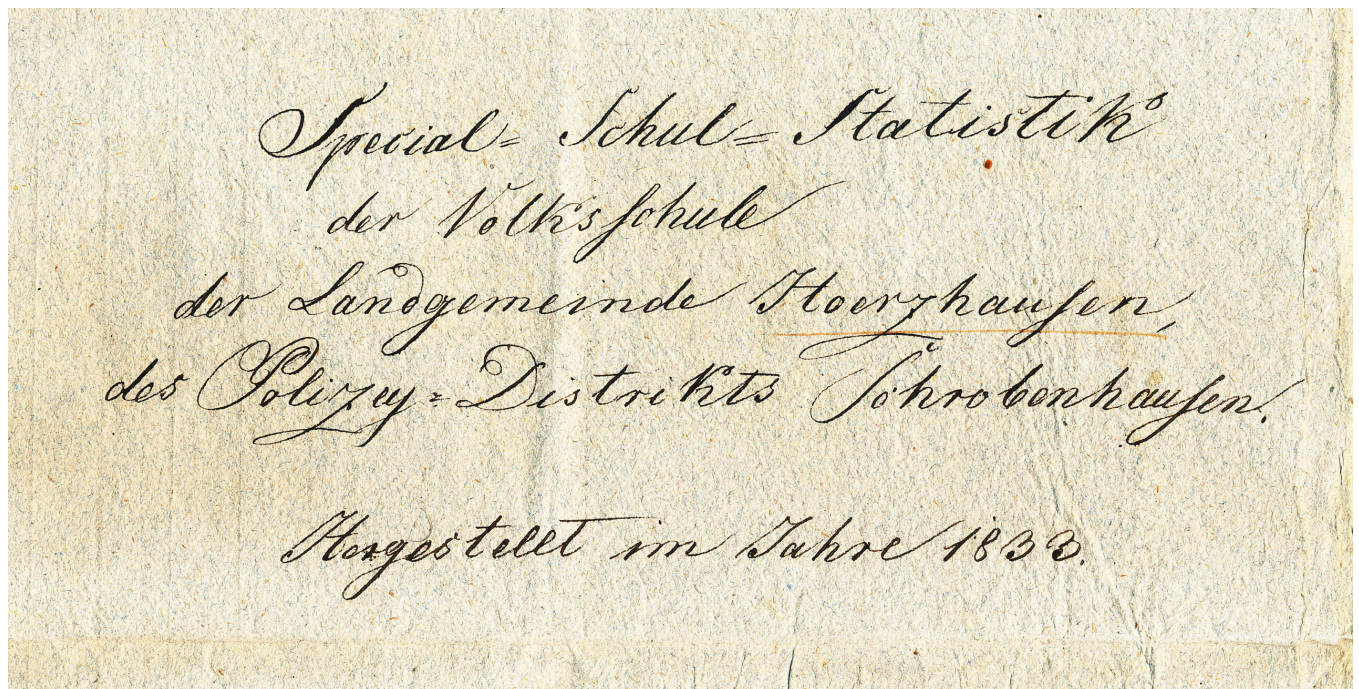 Special= Schul= Statistik
der Volksschule
der Landgemeinde Hoerzhausen,
des Polizey=Distrikts Schrobenhausen.
Hergestellt im Jahre 1833.